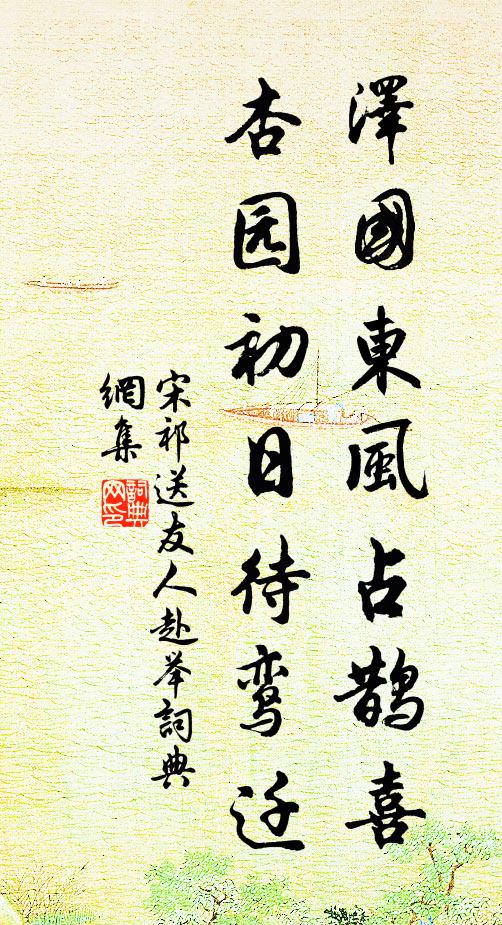 澤國東風占鵲喜
杏园初日待鸾迁
宋祁送友人赴举詞典
網集
詞典
网印